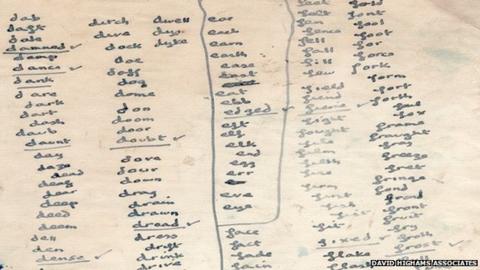 dab
daft
dale
damned
damp
dance
dank
dare
dark
dart
dash
daub
daunt
day
daze
dead
deaf
dear
deep
deed
dell
den
dense
dutch
dive
dock
doe
doff
dog
dome
don
doom
door
doubt
dove
down
drag
drain
drawn
dread
dress
drift
drink
drive
dwell
dye
dyke
ear
each
earn
earth
ease
east
eat
ebb
edged
eft
elf
elk
end
egg
err
eve
eye
face
fact
fade
fain
fell
fall
fill
few
field
fiend
fight
fought
film
filth
fire
firm
first
fish
fist
fit
fixed
flake
fold
font
fool
foot
for
force
fork
form
fort
forth
foul
fox
frame
fraught
fray
freeze
fret
fringe
frond
front
fruit
fry
froth
frost
DAVID HIGHAMS ASSOCIATES